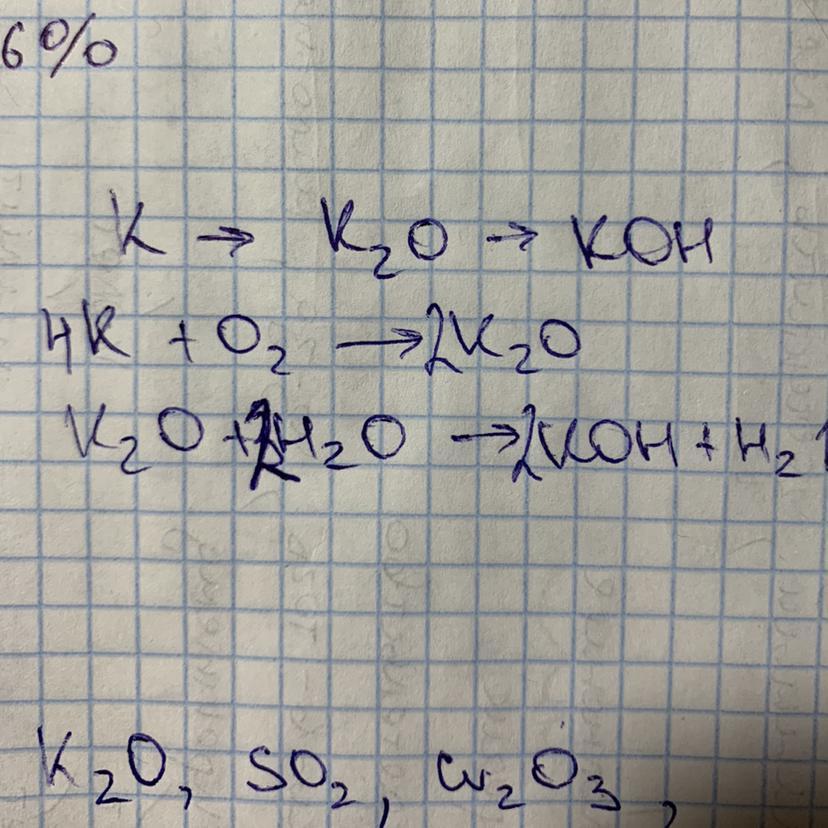 6%
K → K₂O → KOH
4K + O₂ → 2K₂O
K₂O + 2H₂O → 2KOH + H₂↑
K₂O, SO₂, Cr₂O₃,